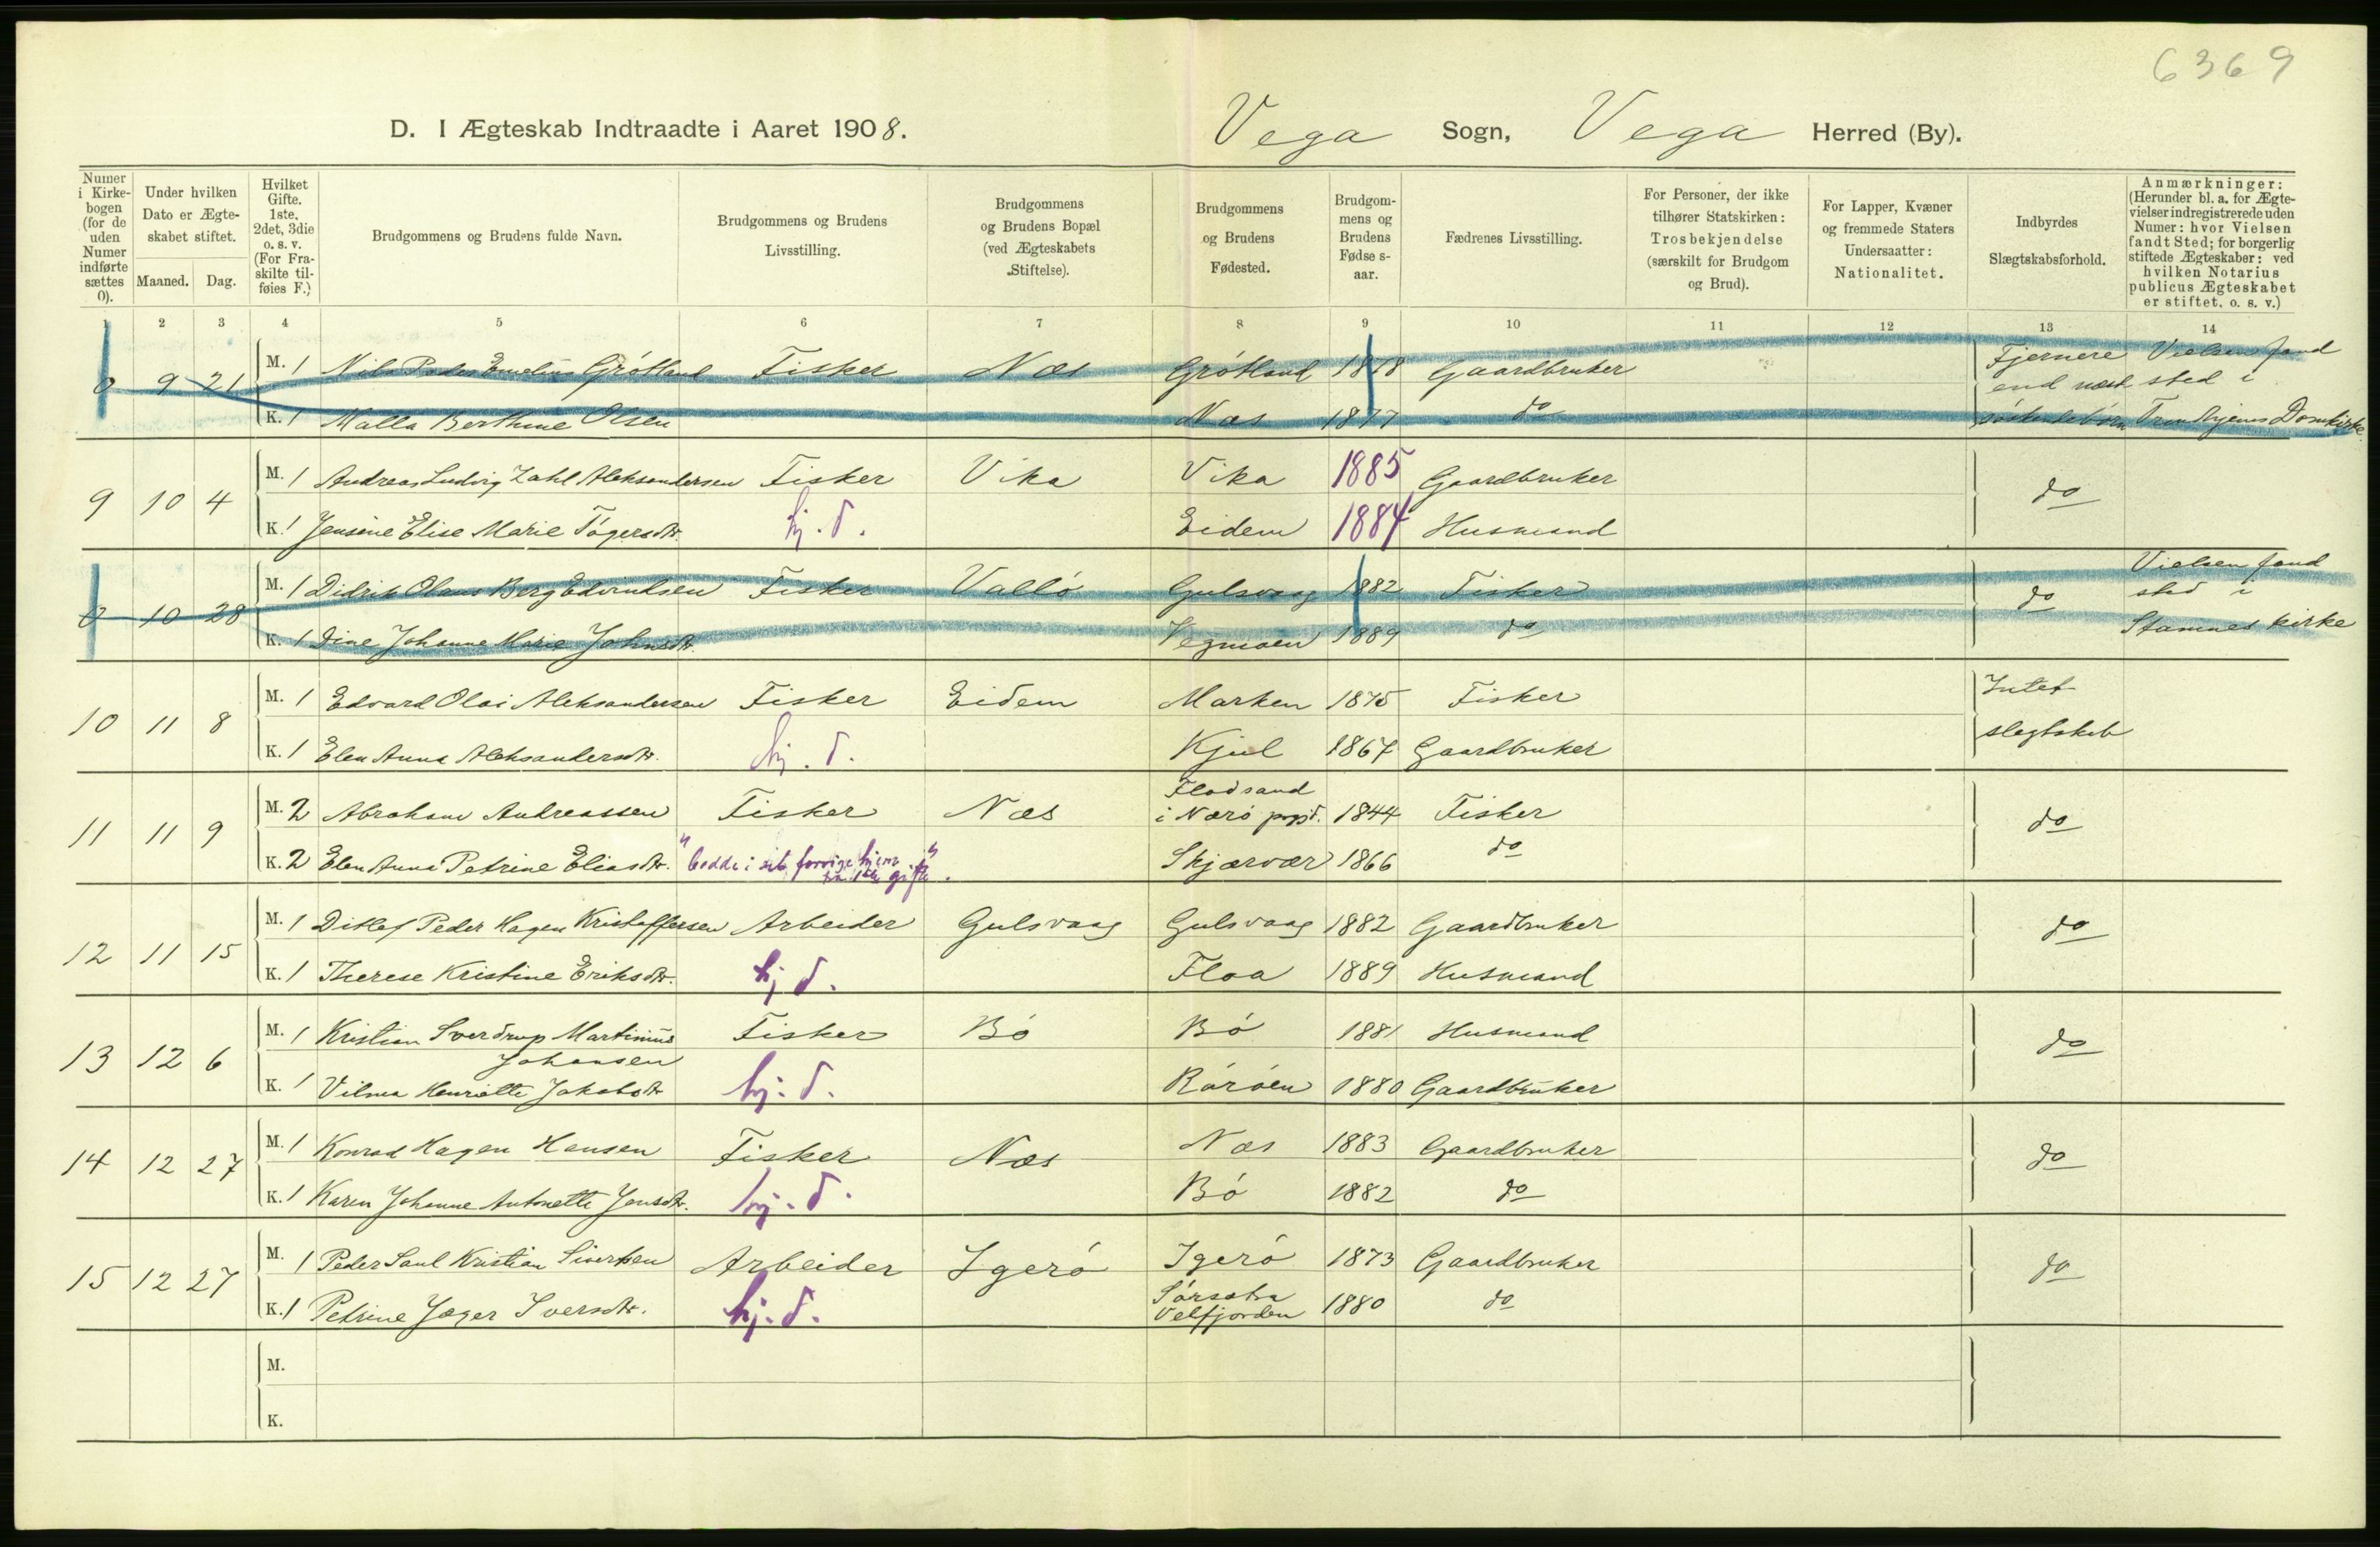 6369
D. I Ægteskab Indtraadte i Aaret 1908.
Vega Sogn, Vega Herred (By).
Numer i Kirkebogen (for de uden Numer indførte sættes 0).
Under hvilken Dato er Ægteskabet stiftet.
Maaned. Dag.
Hvilket Gifte. 1ste, 2det, 3die o. s. v. (For Fraskilte tilføies F.)
Brudgommens og Brudens fulde Navn.
Brudgommens og Brudens Livsstilling.
Brudgommens og Brudens Bopæl (ved Ægteskabets Stiftelse).
Brudgommens og Brudens Fødested.
Brudgommens og Brudens Fødselsaar.
Fædrenes Livsstilling.
For Personer, der ikke tilhører Statskirken: Trosbekjendelse (særskilt for Brudgom og Brud).
For Lapper, Kvæner og fremmede Staters Undersaatter: Nationalitet.
Indbyrdes Slægtskabsforhold.
Anmærkninger: (Herunder bl. a. for Ægtevielser indregistrerede uden Numer: hvor Vielsen fandt Sted; for borgerlig stiftede Ægteskaber: ved hvilken Notarius publicus Ægteskabet er stiftet. o. s. v.)
1 2 3 4 5 6 7 8 9 10 11 12 13 14
0 9 21 M. 1 Nils Peder Emelius Grótland Fisker Næs Grótland 1878 Gaardbruker Fjernere end næst sóskendebörn Vielsen fand sted i Trondhjems Domkirke
K. 1 Malla Berthine Olsen Næs 1877 do
9 10 4 M. 1 Andreas Ludvig Zahl Aleksandersen Fisker Vika Vika 1885 Gaardbruker do
K. 1 Jensine Elise Marie Tógersdtr. hj. d. Eidem 1884 Husmand
0 10 28 M. 1 Didrik Olaus Berg Edvindsen Fisker Valló Gulsvaag 1882 Fisker do Vielsen fand sted i Stamnes kirke
K. 1 Dine Johanne Marie Johnsdtr. Vegmoen 1889 do
10 11 8 M. 1 Edvard Olai Aleksandersen Fisker Eidem Marken 1875 Fisker Intet slegtskab
K. 1 Elen Anna Aleksandersdtr. hj. d. Kjul 1867 Gaardbruker
11 11 9 M. 2 Abraham Andreassen Fisker Næs Flodsand i Næró prgjd. 1844 Fisker do
K. 2 Elen Anna Petrine Eliasdtr. "bodde i sit forrige hjem fra 1ste gifte". Skjærvær 1866 do
12 11 15 M. 1 Ditlef Peder Hagen Kristoffersen Arbeider Gulsvaag Gulsvaag 1882 Gaardbruker do
K. 1 Therese Kristine Eriksdtr. hj d. Floa 1889 Husmand
13 12 6 M. 1 Kristian Sverdrup Martinius Johansen Fisker Bó Bó 1881 Husmand do
K. 1 Vilma Henriette Jakobsdtr hj. d. Róróen 1880 Gaardbruker
14 12 27 M. 1 Konrad Hagen Hansen Fisker Næs Næs 1883 Gaardbruker do
K. 1 Karen Johanne Antonette Jensdtr. hj. d. Bó 1882 do
15 12 27 M. 1 Peder Saul Kristian Sivertsen Arbeider Igeró Igeró 1873 Gaardbruker do
K. 1 Petrine Jæger Iversdtr. hj. d. Velfjorden 1880 do
M.
K.